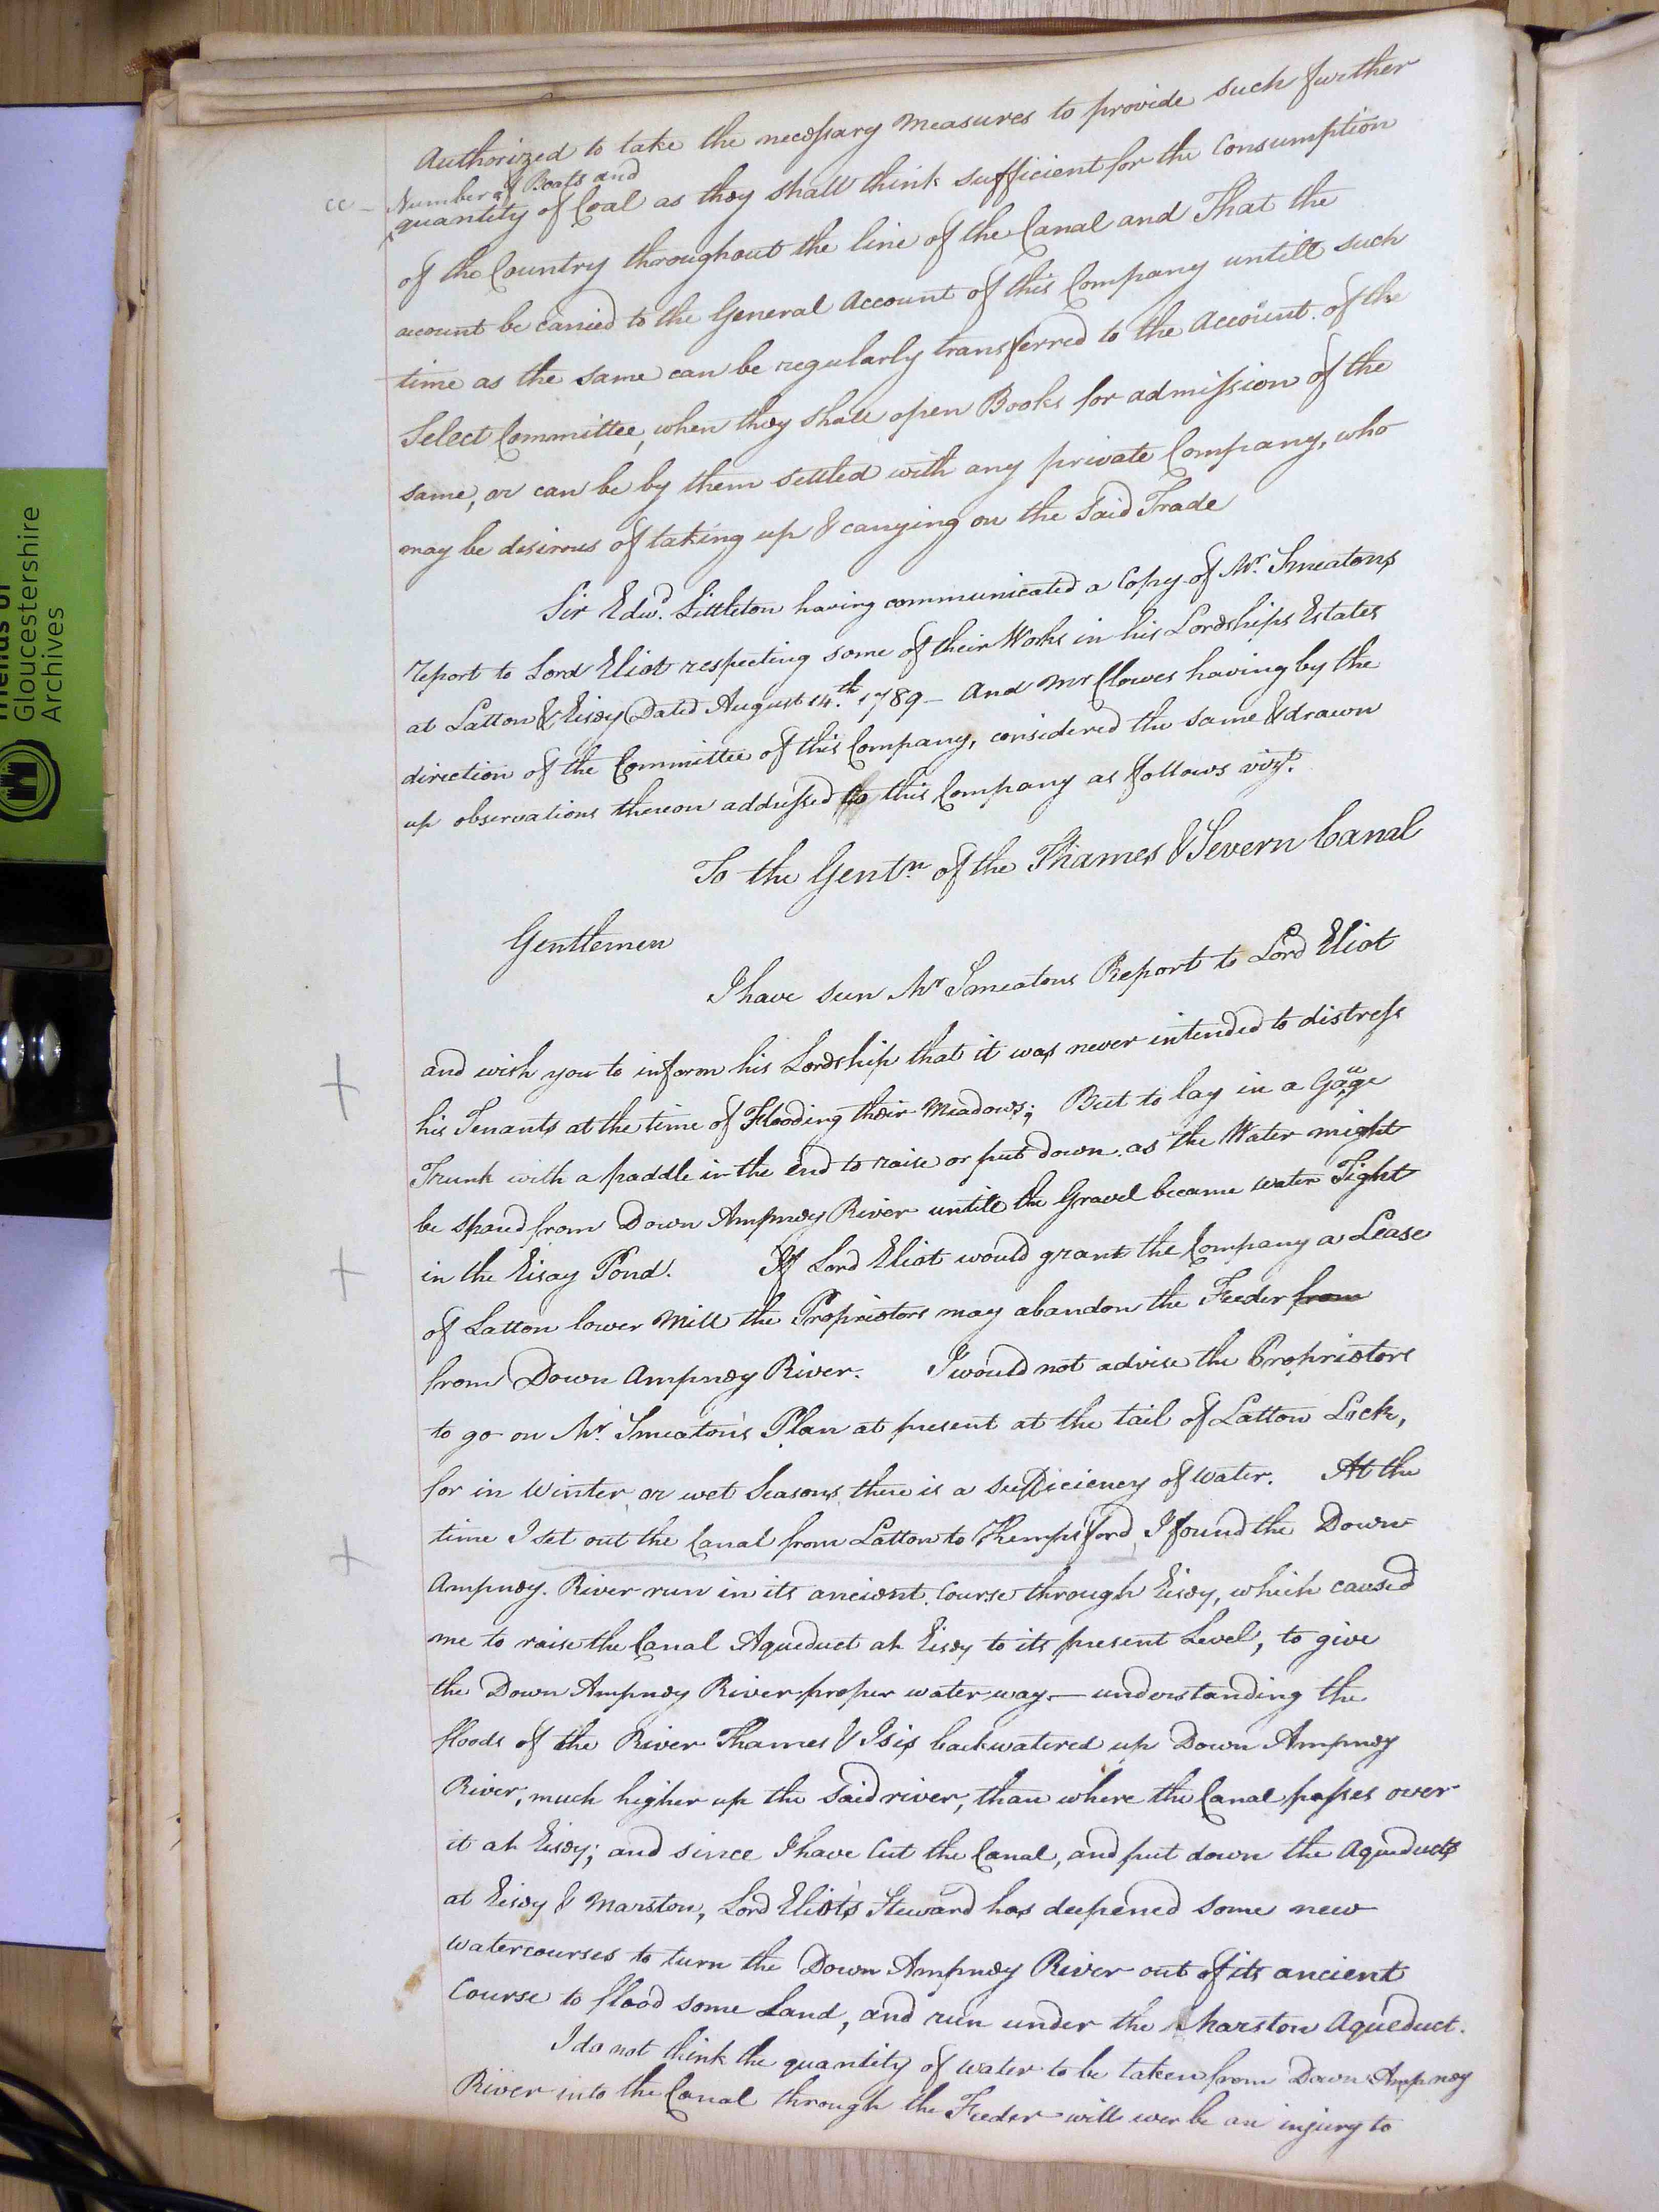 Authorized to take the necessary Measures to provide such further
cc - Number of Boats and
quantity of Coal as they shall think sufficient for the Consumption
of the Country throughout the line of the Canal and That the
account be carried to the General Account of this Company untill such
time as the same can be regularly transferred to the Account of the
Select Committee, when they shall open Books for admission of the
same, or can be by them settled with any private Company, who
may be desirous of taking up & carrying on the said Trade
Sir Edwd. Littleton having communicated a Copy of Mr. Smeatons
report to Lord Eliot respecting some of their Works in his Lordships Estates
at Latton & Eisey Dated August 14th. 1789 - And Mr Clowes having by the
direction of the Committee of this Company, considered the same & drawn
up observations thereon addressed to this Company as follows vizt.
To the Gentn. of the Thames & Severn Canal
Gentlemen
I have seen Mr Smeatons Report to Lord Eliot
and wish you to inform his Lordship that it was never intended to distress
his Tenants at the time of Flooding their Meadows; But to lay in a Gauge
Trunk with a paddle in the end to raise or put down as the Water might
be spared from Down Ampney River untill the Gravel became water Tight
in the Eisay Pond. If Lord Eliot would grant the Company a Lease
of Latton lower Mill the Proprietors may abandon the Feeder from
from Down Ampney River. I would not advise the Proprietors
to go on Mr. Smeaton's Plan at present at the tail of Latton Lock,
for in Winter or wet Seasons there is a sufficiency of water. At the
time I set out the Canal from Latton to Kempsford I found the Down
Ampney River run in its ancient Course through Eisey, which caused
me to raise the Canal Aqueduct at Eisey to its present Level, to give
the Down Ampney River proper water way - understanding the
floods of the River Thames & Isis backwatered up Down Ampney
River, much higher up the said river, than where the Canal passes over
it at Eisey; and since I have Cut the Canal, and put down the Aqueducts
at Eisey & Marston, Lord Eliots Steward has deepened some new
watercourses to turn the Down Ampney River out of its ancient
Course to flood some Land, and run under the Marston Aqueduct.
I do not think the quantity of water to be taken from Down Ampney
River into the Canal through the Feeder will ever be an injury to
Friends of
Gloucestershire
Archives